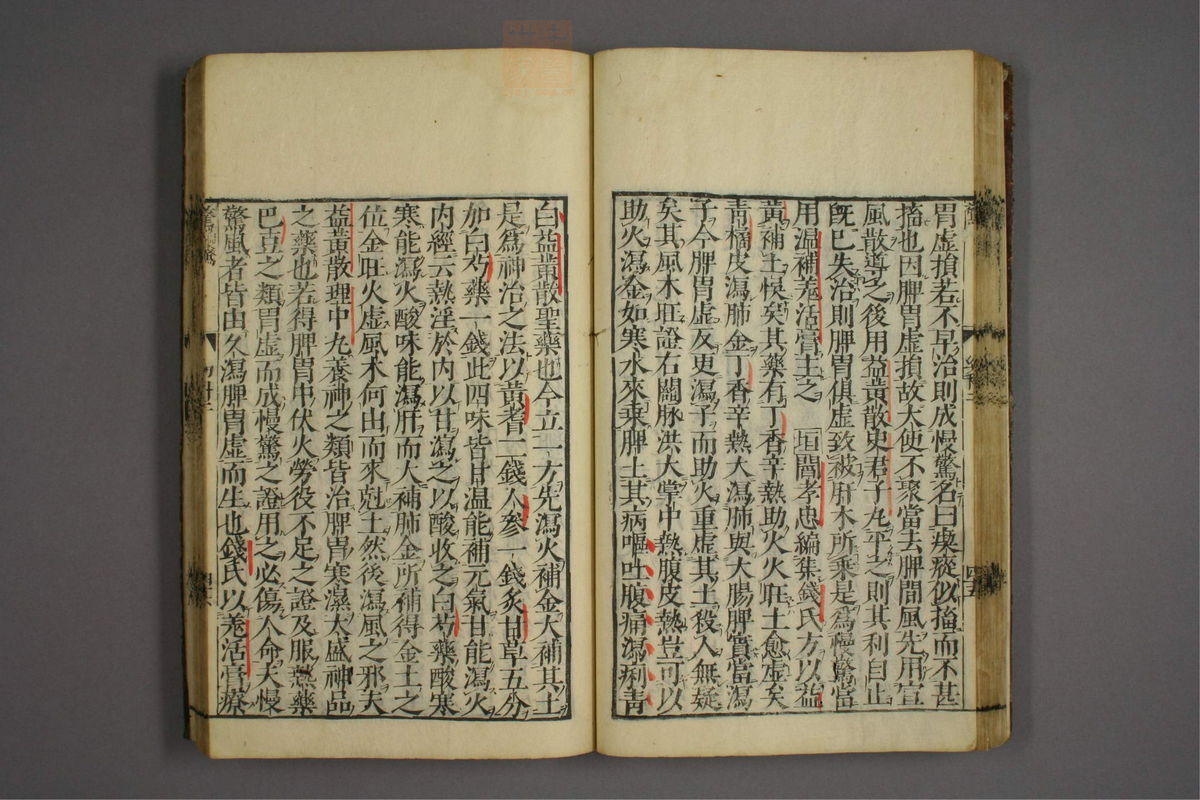 胃虛損若不早治則成慢驚名曰瘈瘲似搐而不甚
搐也因脾胃虛損故大便不聚當去脾間風先用宣
風散導之後用益黃散史君子丸平之則其利自止
旣已失治則脾胃俱虛致被肝木所乘是爲慢驚當
用温補羗活膏主之 垣閭孝忠編集錢氏方以益
黃補土悞矣其藥有丁香辛熱助火火旺土愈虛矣
青橘皮瀉肺金丁香辛熱大瀉肺與大腸脾實當瀉
子今脾胃虛反更瀉子而助火重虛其土殺人無疑
矣其風木旺證右關脉洪大掌中熱腹皮熱豈可以
助火瀉金如寒水來乘脾土其病嘔吐腹痛瀉痢青
白益黃散聖藥也今立一方先瀉火補金大補其土
是爲神治之法以黃耆二錢人參一錢炙甘草五分
加白芍藥一錢此四味皆甘温能補元氣甘能瀉火
内經云熱淫於内以甘瀉之以酸收之白芍藥酸寒
寒能瀉火酸味能瀉肝而大補肺金所補得金土之
位金旺火虛風木何由而來尅土然後瀉風之邪夫
益黃散理中丸養神之類皆治脾胃寒濕太盛神品
之藥也若得脾胃中伏火勞役不足之證及服熱藥
巴豆之類胃虛而成慢驚之證用之必傷人命夫慢
驚風者皆由久瀉脾胃虛而生也錢氏以羗活膏療